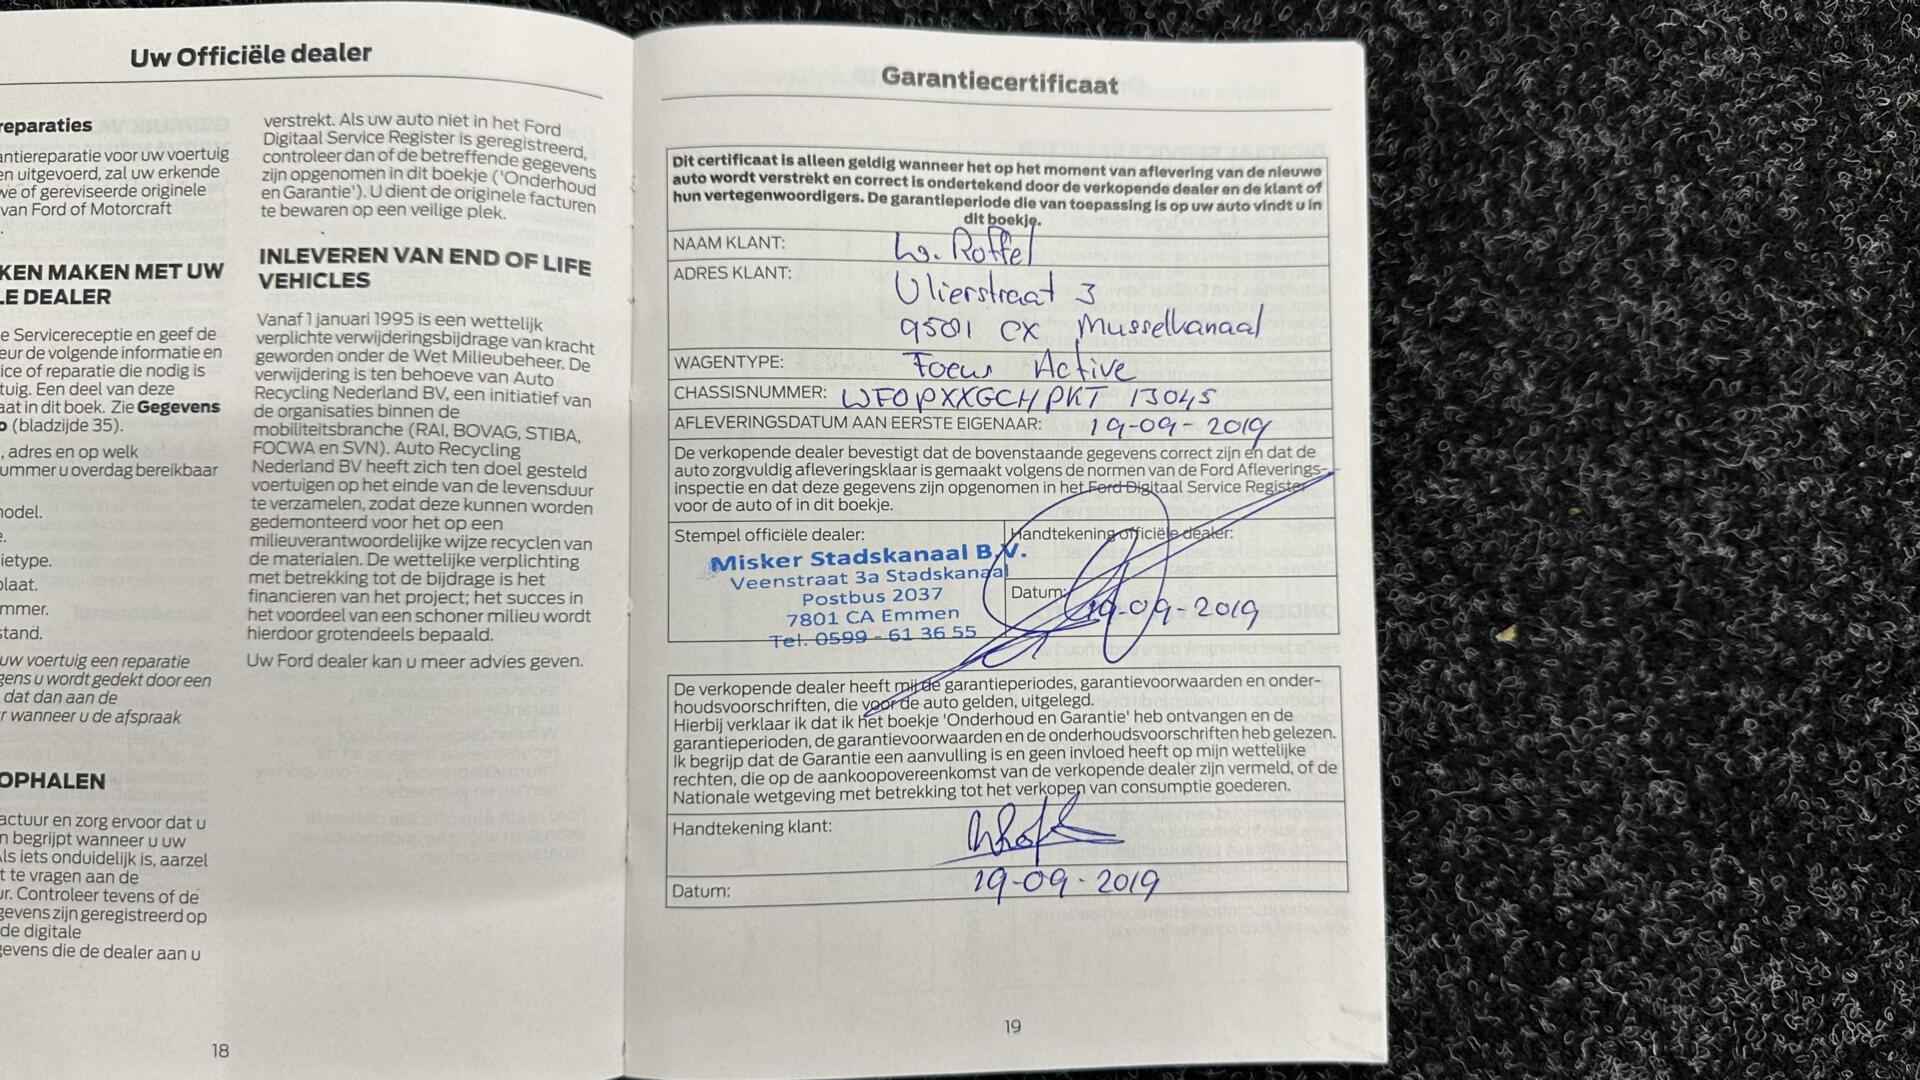 Uw Officiële dealer
reparaties
antiereparatie voor uw voertuig
en uitgevoerd, zal uw erkende
we of gereviseerde originele
van Ford of Motorcraft
.
KEN MAKEN MET UW
LE DEALER
e Servicereceptie en geef de
eur de volgende informatie en
ice of reparatie die nodig is
tuig. Een deel van deze
aat in dit boek. Zie Gegevens
o (bladzijde 35).
, adres en op welk
ummer u overdag bereikbaar
model.
e.
ietype.
plaat.
mmer.
stand.
uw voertuig een reparatie
gens u wordt gedekt door een
dat dan aan de
r wanneer u de afspraak
OPHALEN
actuur en zorg ervoor dat u
n begrijpt wanneer u uw
Als iets onduidelijk is, aarzel
t te vragen aan de
ur. Controleer tevens of de
gevens zijn geregistreerd op
de digitale
gevens die de dealer aan u
verstrekt. Als uw auto niet in het Ford
Digitaal Service Register is geregistreerd,
controleer dan of de betreffende gegevens
zijn opgenomen in dit boekje ('Onderhoud
en Garantie'). U dient de originele facturen
te bewaren op een veilige plek.
INLEVEREN VAN END OF LIFE
VEHICLES
Vanaf 1 januari 1995 is een wettelijk
verplichte verwijderingsbijdrage van kracht
geworden onder de Wet Milieubeheer. De
verwijdering is ten behoeve van Auto
Recycling Nederland BV, een initiatief van
de organisaties binnen de
mobiliteitsbranche (RAI, BOVAG, STIBA,
FOCWA en SVN). Auto Recycling
Nederland BV heeft zich ten doel gesteld
voertuigen op het einde van de levensduur
te verzamelen, zodat deze kunnen worden
gedemonteerd voor het op een
milieuverantwoordelijke wijze recyclen van
de materialen. De wettelijke verplichting
met betrekking tot de bijdrage is het
financieren van het project; het succes in
het voordeel van een schoner milieu wordt
hierdoor grotendeels bepaald.
Uw Ford dealer kan u meer advies geven.
18
Garantiecertificaat
Dit certificaat is alleen geldig wanneer het op het moment van aflevering van de nieuwe
auto wordt verstrekt en correct is ondertekend door de verkopende dealer en de klant of
hun vertegenwoordigers. De garantieperiode die van toepassing is op uw auto vindt u in
dit boekje.
NAAM KLANT: Roffel
ADRES KLANT: Vlierstraat 3
9501 CX Musselkanaal
WAGENTYPE: Focus Active
CHASSISNUMMER: WF0PXXGCHPKT 13045
AFLEVERINGSDATUM AAN EERSTE EIGENAAR: 19-09-2019
De verkopende dealer bevestigt dat de bovenstaande gegevens correct zijn en dat de
auto zorgvuldig afleveringsklaar is gemaakt volgens de normen van de Ford Afleverings-
inspectie en dat deze gegevens zijn opgenomen in het Ford Digitaal Service Register
voor de auto of in dit boekje.
Stempel officiële dealer: Handtekening officiële dealer:
Misker Stadskanaal B.V.
Veenstraat 3a Stadskanaal
Postbus 2037
7801 CA Emmen
Tel. 0599 - 61 36 55
Datum: 19-09-2019
De verkopende dealer heeft mij de garantieperiodes, garantievoorwaarden en onder-
houdsvoorschriften, die voor de auto gelden, uitgelegd.
Hierbij verklaar ik dat ik het boekje 'Onderhoud en Garantie' heb ontvangen en de
garantieperioden, de garantievoorwaarden en de onderhoudsvoorschriften heb gelezen.
Ik begrijp dat de Garantie een aanvulling is en geen invloed heeft op mijn wettelijke
rechten, die op de aankoopovereenkomst van de verkopende dealer zijn vermeld, of de
Nationale wetgeving met betrekking tot het verkopen van consumptie goederen.
Handtekening klant:
Datum: 19-09-2019
19